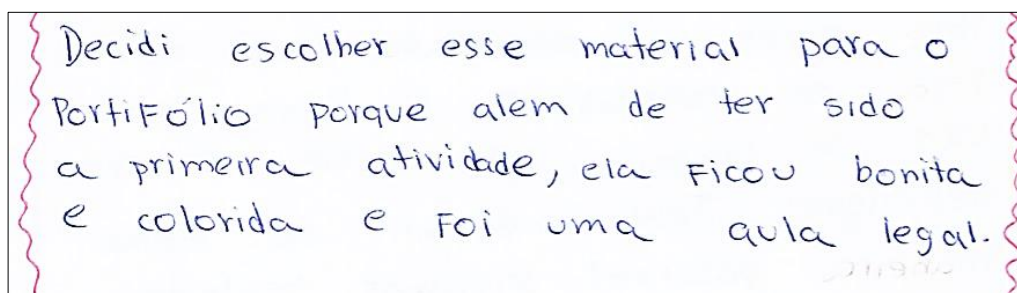 Decidi escolher esse material para o
Portifólio porque alem de ter sido
a primeira atividade, ela ficou bonita
e colorida e foi uma aula legal.